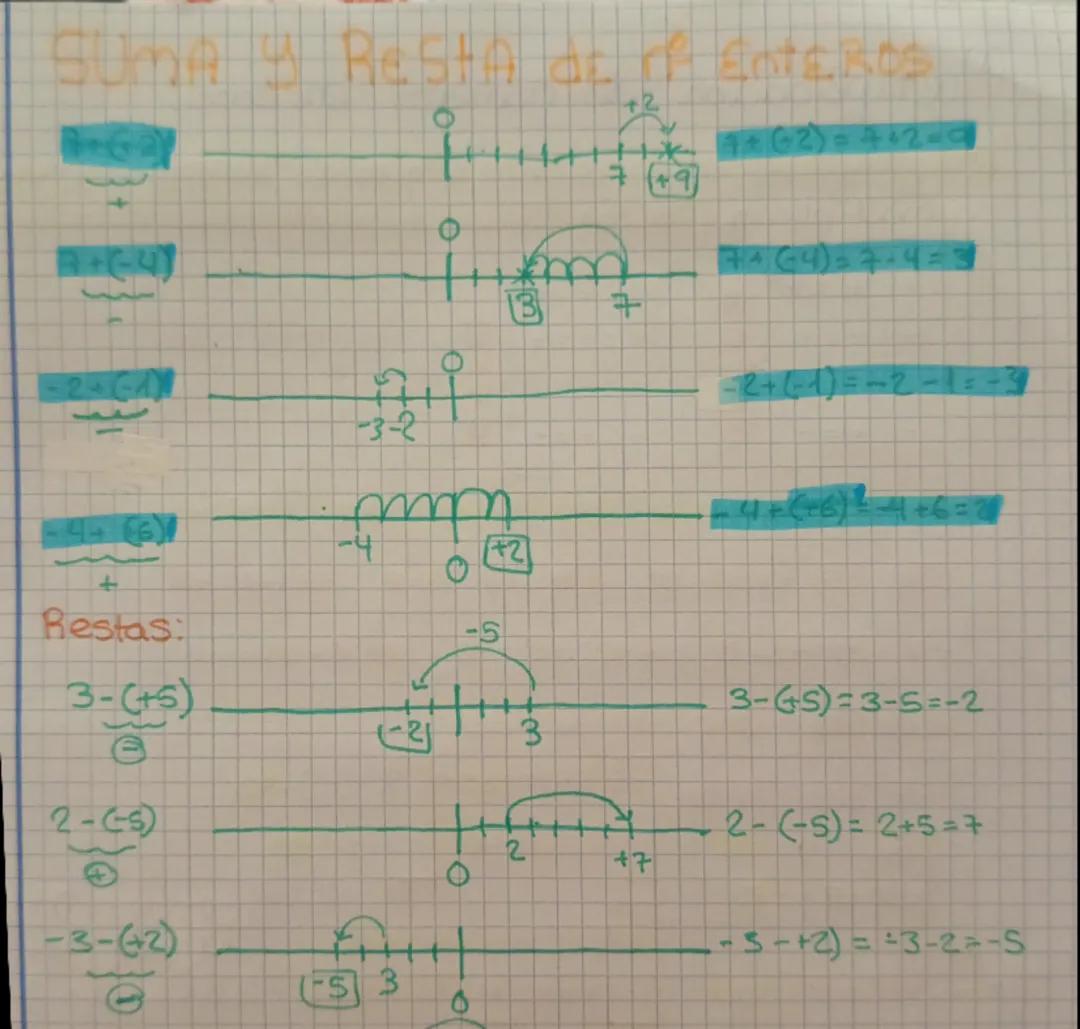 SUMA Y RESTA DE nº ENTEROS
0 +2
7+(+2) 7+(+2)=7+2=9
+ 7 +9
0
7+(-4) 7+(-4)=7-4=3
- 3 7
0
-2+(-1) -2+(-1)=-2-1=-3
- -3 -2
-4+(6) -4+(+6)=-4+6=2
-4 0 +2
+
Restas:
-5
3-(+5) 3-(+5)=3-5=-2
- -2 3
2-(-5) 2-(-5)=2+5=7
+ 0 2 +7
-3-(+2) -3-+2)=-3-2=-5
- -5 3 0